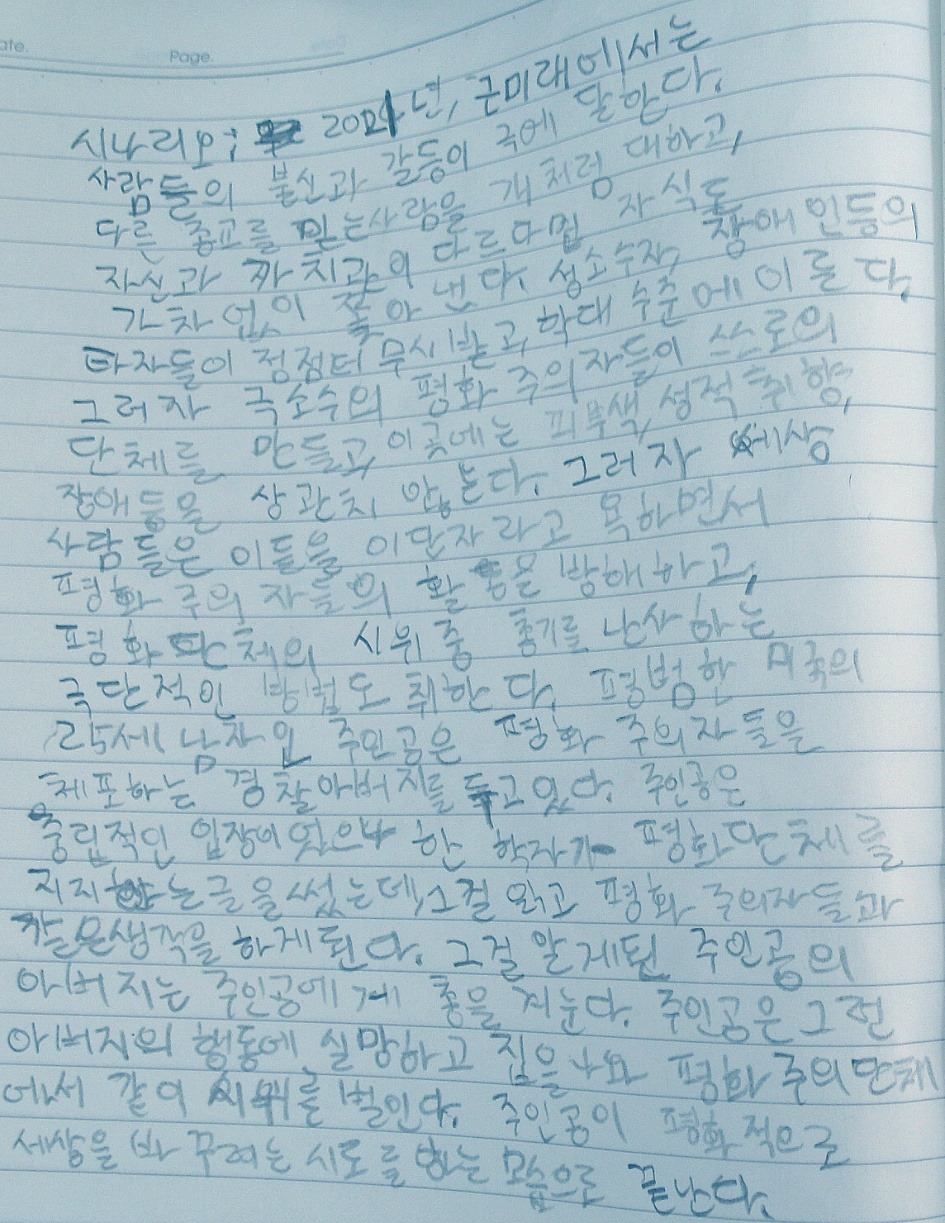 ate.
Page.
시나리오; 2021년, 근미래에서는
사람들의 불신과 갈등이 극에 달한다.
다른 종교를 믿는사람을 개처럼 대하고,
자신과 가치관이 다르다며 자식도
가차없이 쫓아낸다. 성소수자, 장애인등의
타자들이 점점더 무시받고, 학대 수준에 이른다.
그러자 극소수의 평화 주의자들이 스스로의
단체를 만들고, 이곳에는 피부색, 성적취향,
장애등을 상관치 않는다. 그러자 세상
사람들은 이들을 이단자라고 욕하면서
평화 주의 자들의 활동을 방해하고,
평화단체의 시위중 총기를 난사하는
극단적인 방법도 취한다. 평범한 미국의
25세 남자인 주인공은 평화 주의자들을
체포하는 경찰아버지를 두고있다. 주인공은
중립적인 입장이었으나 한 학자가 평화단체를
지지하는글을썼는데, 그걸 읽고 평화 주의자들과
같은생각을 하게된다. 그걸 알게된 주인공의
아버지는 주인공에게 총을 겨눈다. 주인공은 그런
아버지의 행동에 실망하고 집을 나와 평화주의단체
에서 같이 시위를 벌인다. 주인공이 평화적으로
세상을 바꾸려는 시도를 하는 모습으로 끝난다.